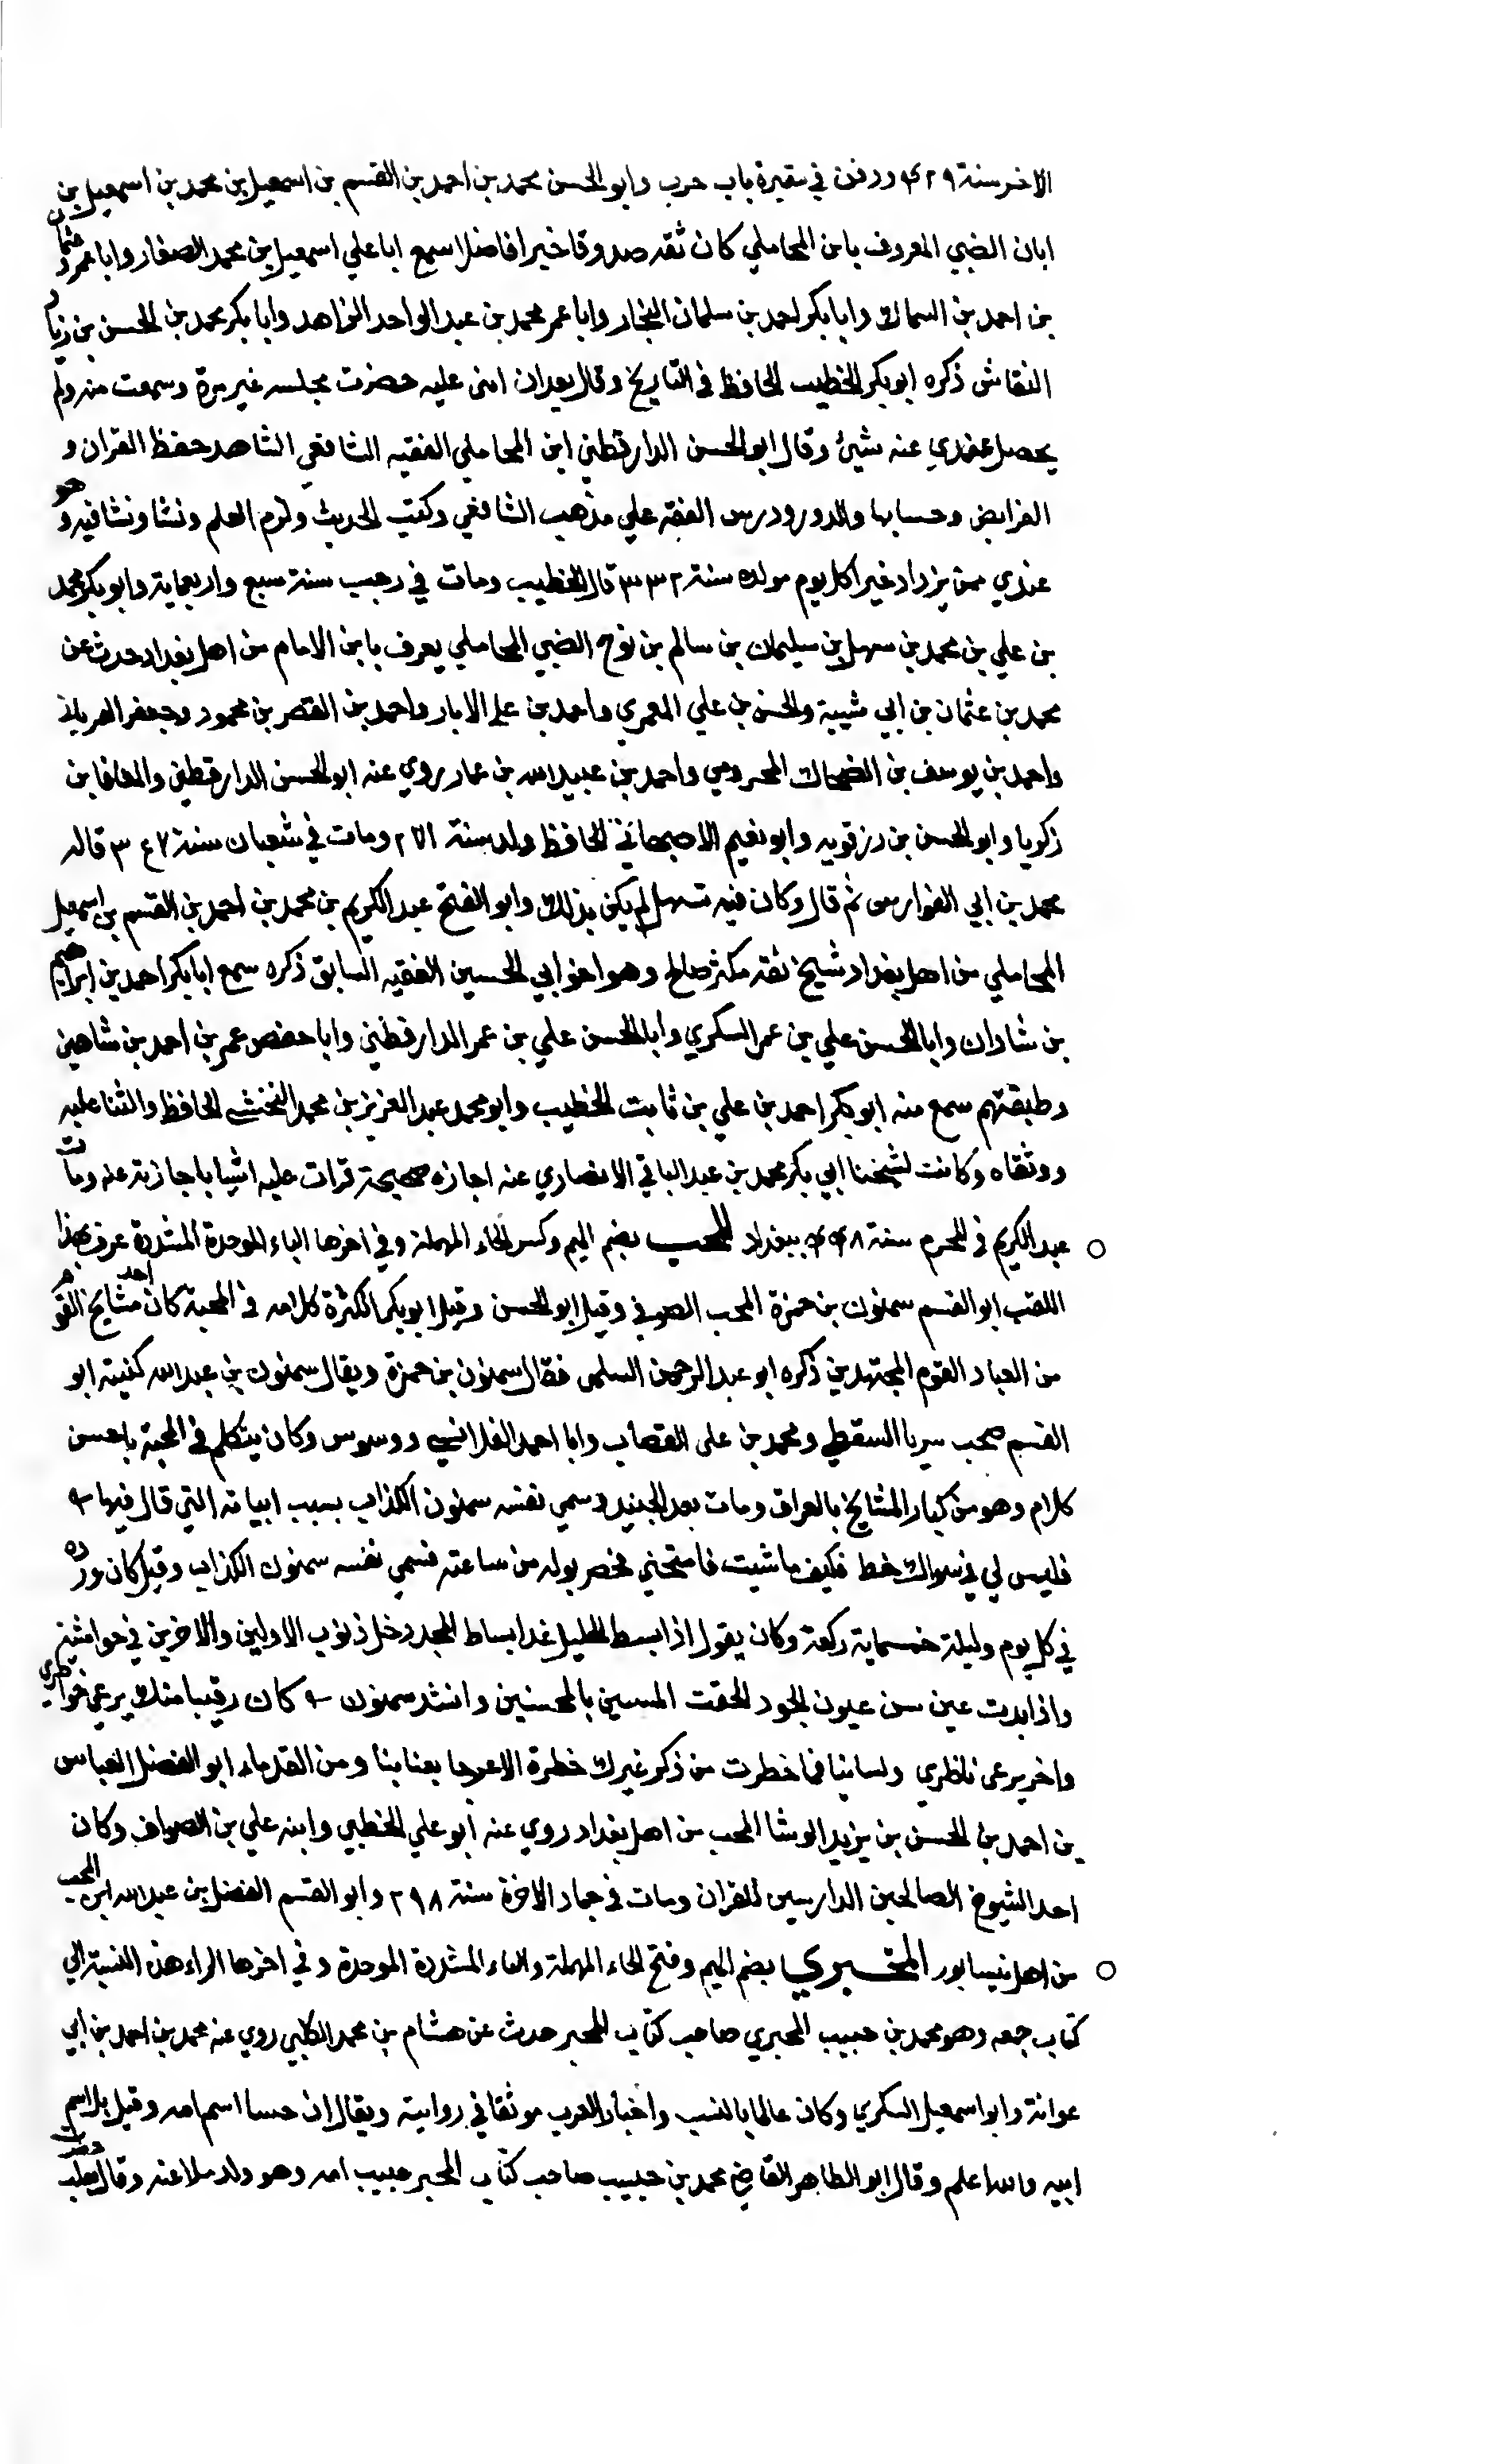 الاخر سنة ٤٢٩ ودفن في مقبرة باب حرب وابو الحسن محمد بن احمد بن القسم بن اسمعيل بن محمد بن اسمعيل بن
ابان الضبي المعروف بابن المحاملي كان ثقه صدوقا خيرا فاضلا سمع ابا علي اسمعيل بن محمد الصفار وابا عمرو عثمان
بن احمد بن السماك وابا بكر احمد بن سلمان النجار وابا عمر محمد بن عبد الواحد الزاهد وابا بكر محمد بن الحسن بن زياد
النقاش ذكره ابو بكر الخطيب الحافظ في التاريخ وقال بعد ان اثنى عليه حضرت مجلسه غير مرة وسمعت منه ولم
يحصل عندي عنه شيئ وقال ابو الحسن الدارقطني ابن المحاملي الفقيه الشافعي الشاهد حفظ القران و
الفرايض وحسابها والدور ودرس الفقه علي مذهب الشافعي وكتب الحديث ولزم العلم ونشا ونشا فيه وهو
عندي ممن يزداد خيرا كل يوم مولده سنة ٣٣٢ قال الخطيب ومات في رجب سنة سبع واربعماية وابو بكر محمد
بن علي بن محمد بن سهل بن سليمان بن سالم بن نوح الضبي المحاملي يعرف بابن الامام من اهل بغداد حدث عن
محمد بن عثمان بن ابي شيبة والحسن بن علي المعمري واحمد بن علي الابار واحمد بن القصر بن محمود وجعفر الفريابي
واحمد بن يوسف بن الضحاك المخرومي واحمد بن عبيد الله بن عمار روي عنه ابو الحسن الدارقطني والمعافا بن
زكريا وابو الحسن بن رزقويه وابو نعيم الاصبهاني الحافظ ولد سنة ٢٧١ ومات في شعبان سنة ٣٤٧ قاله
محمد بن ابي الفوارس ثم قال وكان فيه تسهل لم يكن بذلك وابو الفتح عبد الكريم بن محمد بن احمد بن القسم بن اسمعيل
المحاملي من اهل بغداد شيخ ثقه مكثر صالح وهو اخو ابي الحسين الفقيه السابق ذكره سمع ابا بكر احمد بن ابراهيم
بن شاذان وابا الحسن علي بن عمر السكري وابا الحسن علي بن عمر الدارقطني وابا حفص عمر بن احمد بن شاهين
وطبقتهم سمع منه ابو بكر احمد بن علي بن ثابت الخطيب وابو محمد عبد العزيز بن محمد النخشبي الحافظ والثنا عليه
ووثقاه وكانت لشيخنا ابي بكر محمد بن عبد الباقي الانصاري عنه اجازه صحيحة قرات عليه اشيا باجازته عنه ومات
عبد الكريم في المحرم سنة ٤٤٨ ببغداد المحب بضم الميم وكسر الحاء المهملة وفي اخرها الباء الموحدة المشددة عرف بهذا
اللقب ابو القسم سمنون بن حمزة المحب الصوفي وقيل ابو الحسن وقيل ابو بكر الكثرة كلامه في المحبة كان احد مشايخ القوم
من العباد القوم المجتهدين ذكره ابو عبد الرحمن السلمي فقال سمنون بن حمزة ويقال سمنون بن عبد الله كنيته ابو
القسم صحب سريا السقطي ومحمد بن علي القصاب وابا احمد القلانسي ووسوس وكان يتكلم في المحبة باحسن
كلام وهو من كبار المشايخ بالعراق ومات بعد الجنيد وسمي نفسه سمنون الكذاب بسبب ابياته التي قال فيها
فليس لي في سواك حظ فكيف ما شيت فامتحني فحصر بوله من ساعته فسمي نفسه سمنون الكذاب وقيل كان ورده
في كل يوم وليلة خمسماية ركعة وكان يقول اذا بسط الجليل غدا بساط المجد دخل ذنوب الاولين والاخرين في حواشيه
واذا بدت عين من عيون الجود الحقت المسيين بالمحسنين وانشد سمنون كان رقيبا منك يرعى خواطري
واخر يرعى ناظري ولسانيا فما خطرت من ذكر غيرك خطرة الا عرجا بعنانيا ومن القدماء ابو الفضل العباس
بن احمد بن الحسن بن يزيد الوشا المحب من اهل بغداد روي عنه ابو علي الخطبي وابنه علي بن الصواف وكان
احد الشيوخ الصالحين الدارسين للقران ومات في جماد الاخرة سنة ٢٩٨ وابو القسم الفضل بن عبد الله ابن المحب
من اهل نيسابور المحبري بضم الميم وفتح الحاء المهملة والباء المشددة الموحدة وفي اخرها الراء هذه النسبة الي
كتاب جمعه وهو محمد بن حبيب المحبري صاحب كتاب المحبر حدث عن هشام بن محمد الكلبي روي عنه محمد بن احمد بن ابي
عوانة وابو اسمعيل السكري وكان عالما بالنسب واخبار العرب موثقا في روايته ويقال ان حسا اسم امه وقيل بل اسم
ابيه والله اعلم وقال ابو الطاهر القاضي محمد بن حبيب صاحب كتاب المحبر حبيب امه وهو ولد ملاعنه وقال ثعلب حضرت